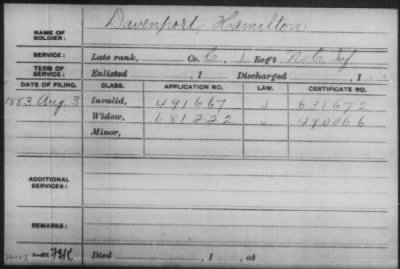 Davenport, Hamilton
NAME OF SOLDIER:
SERVICE: Late rank, Co. C, 1 Reg't N.C. Inf
TERM OF SERVICE: Enlisted , 1 Discharged , 1
DATE OF FILING. CLASS. APPLICATION NO. LAW. CERTIFICATE NO.
1883 Aug. 3 Invalid, 491667 631672
Widow, 681222 490066
Minor,
ADDITIONAL SERVICES:
REMARKS:
Died , 1 , at